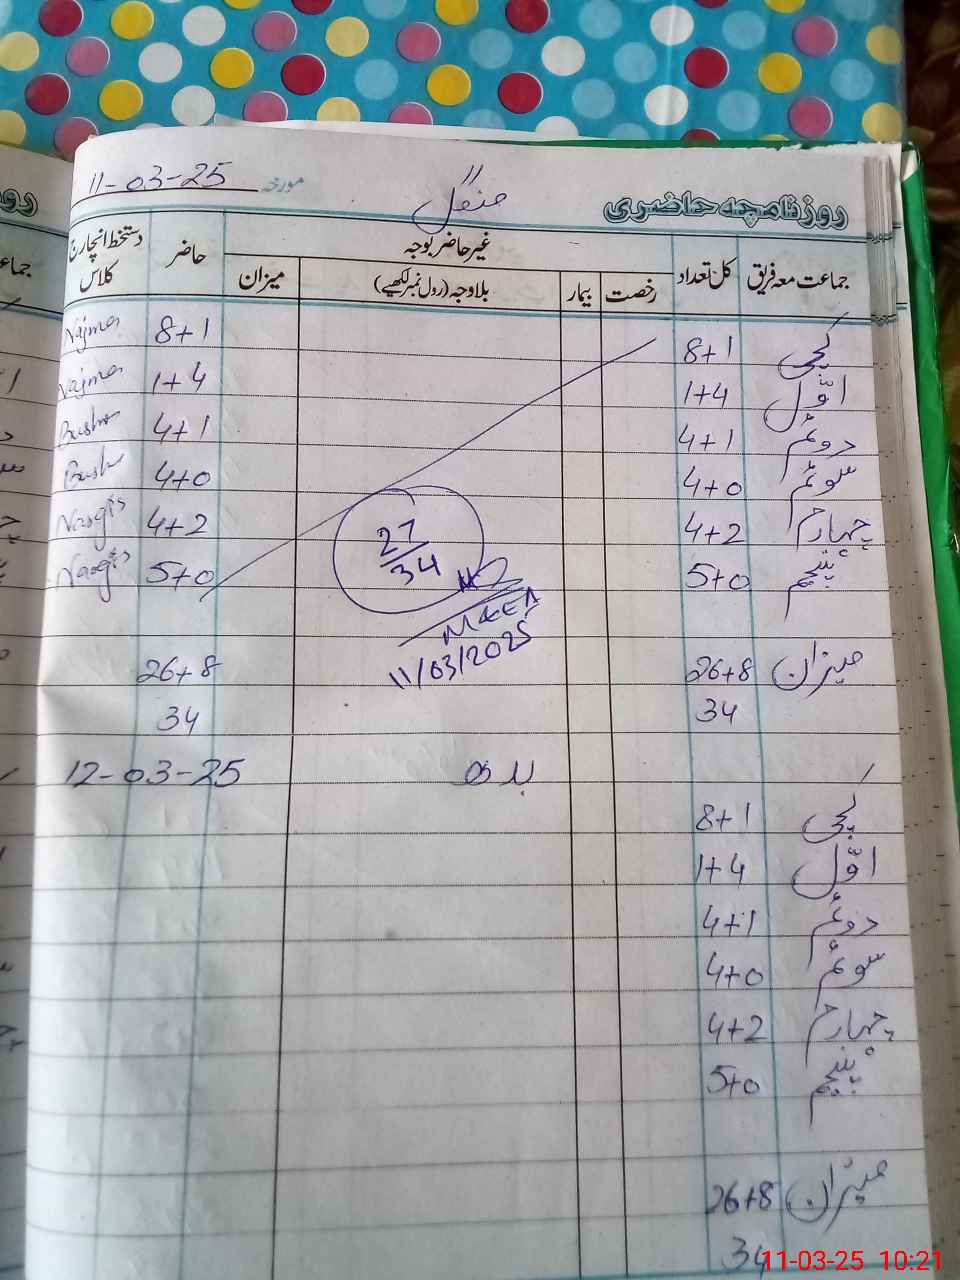 روزنامچہ حاضری منگل مورخہ 11-03-25
جماعت معہ فریق کل تعداد غیر حاضر بوجہ حاضر دستخط انچارج کلاس
رخصت بیمار بلاوجہ (رول نمبر لکھیے) میزان
کچی 8+1 8+1 Najma
اوّل 1+4 1+4 Najma
دوئم 4+1 4+1 Bushr
سوئم 4+0 4+0 Bushr
چہارم 4+2 4+2 Nargis
پنجم 5+0 5+0 Nargis
27
34
MEEA
11/03/2025
میزان 26+8 26+8
34 34
بدھ 12-03-25
کچی 8+1
اوّل 1+4
دوئم 4+1
سوئم 4+0
چہارم 4+2
پنجم 5+0
میزان 26+8
34
11-03-25 10:21